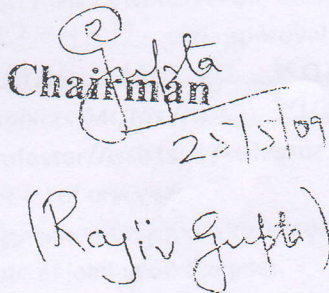 Gupta
Chairman
(Rajiv Gupta)